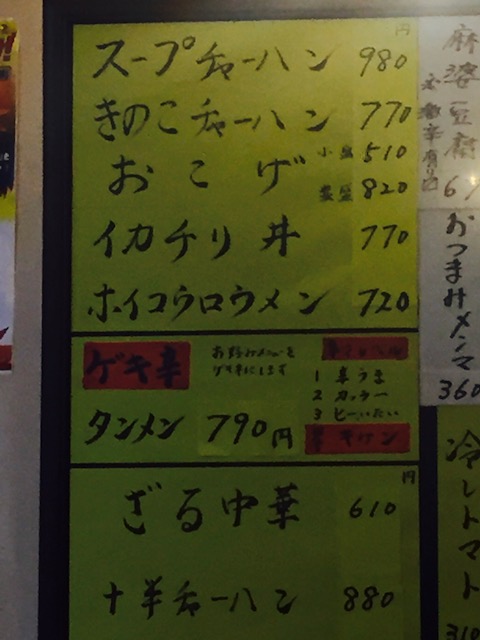 円
スープチャーハン 980
きのこチャーハン 770
おこげ 小皿 510
820
イカチリ丼 770
ホイコウロウメン 720
ゲキ辛
お好みメニューを
ゲキ辛にします
1 辛うま
2 カッラー
3 ヒーいたい
キケン
タンメン 790円
円
ざる中華 610
十半チャーハン 880
麻婆豆腐
おつまみメンマ
360
冷しトマト
310